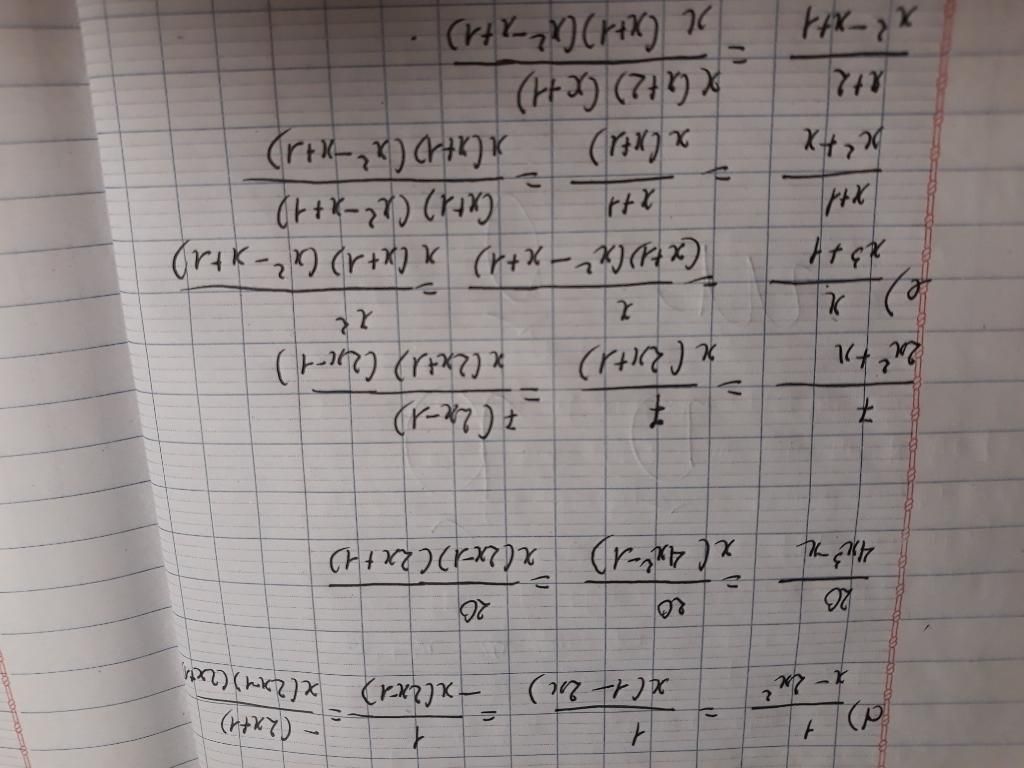 d) 1/(x-2x²) = 1/(x(1-2x)) = 1/(-x(2x-1)) = -(2x+1)/(x(2x-1)(2x+1)
20/(4x³-x) = 20/(x(4x²-1)) = 20/(x(2x-1)(2x+1))
7/(2x²+x) = 7/(x(2x+1)) = 7(2x-1)/(x(2x+1)(2x-1))
e) x/(x³+1) = x/((x+1)(x²-x+1)) = x²/(x(x+1)(x²-x+1))
(x+1)/(x²+x) = (x+1)/(x(x+1)) = (x+1)(x²-x+1)/(x(x+1)(x²-x+1))
(x+2)/(x²-x+1) = x(x+2)(x+1)/(x(x+1)(x²-x+1)).